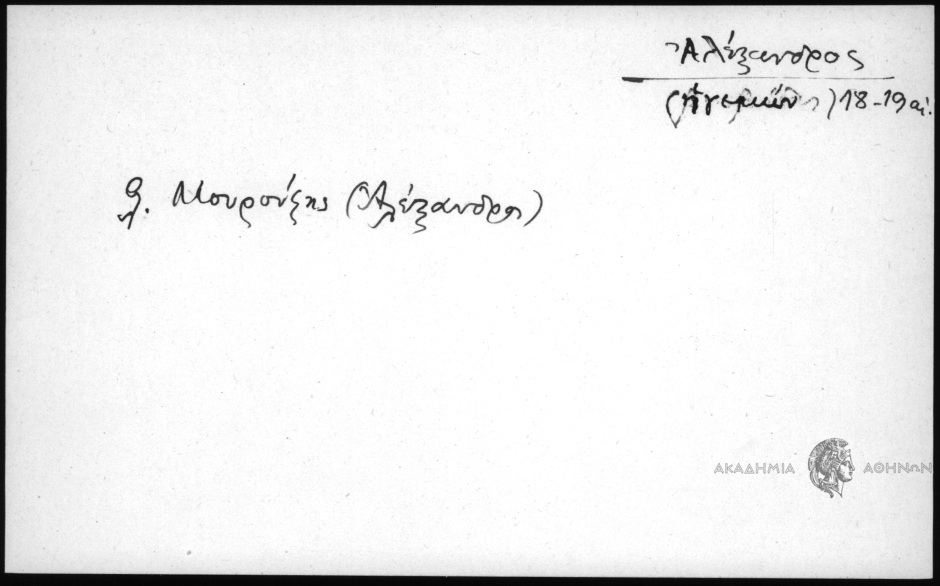 Ἀλέξανδρος
(ἡγεμών) 18-19 αἰ.
Μουρούζης (Ἀλέξανδρος)
ΑΚΑΔΗΜΙΑ ΑΘΗΝΩΝ